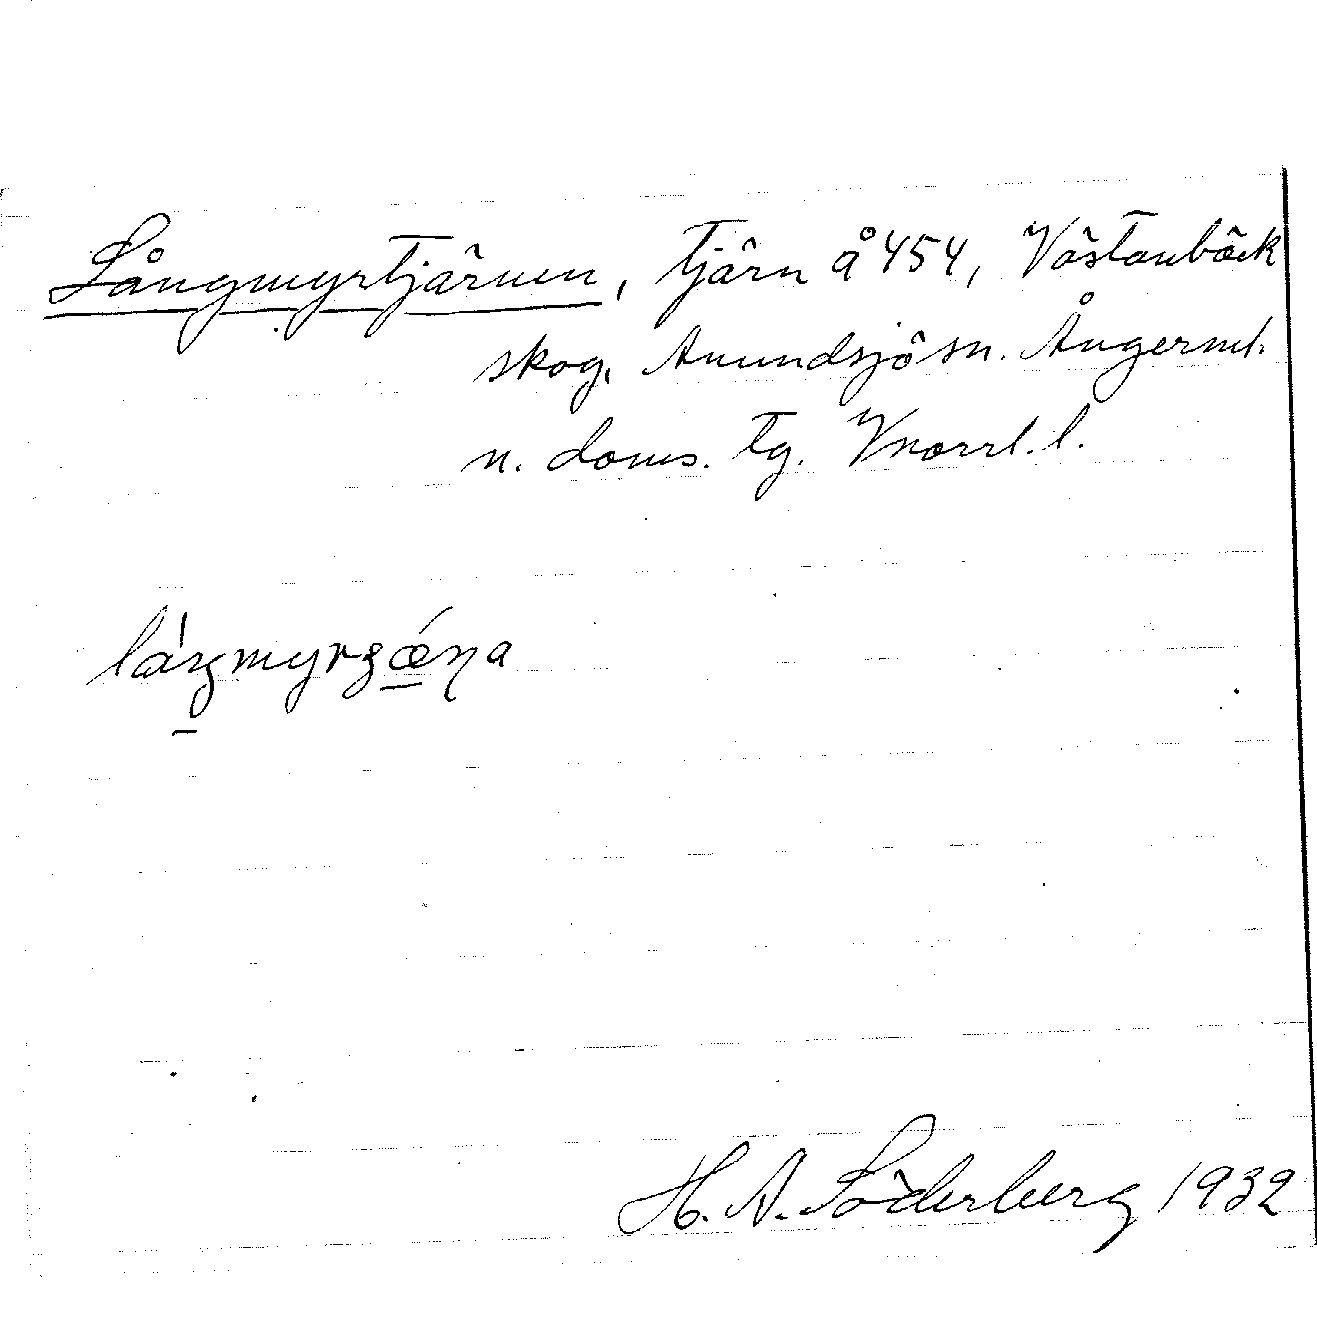 Långmyrtjärnen, tjärn å 454, Västanbäck
skog, Anundsjö sn. Ångerml.
n. doms. tg. Vnorrl. l.
H. A. Söderberg 1932